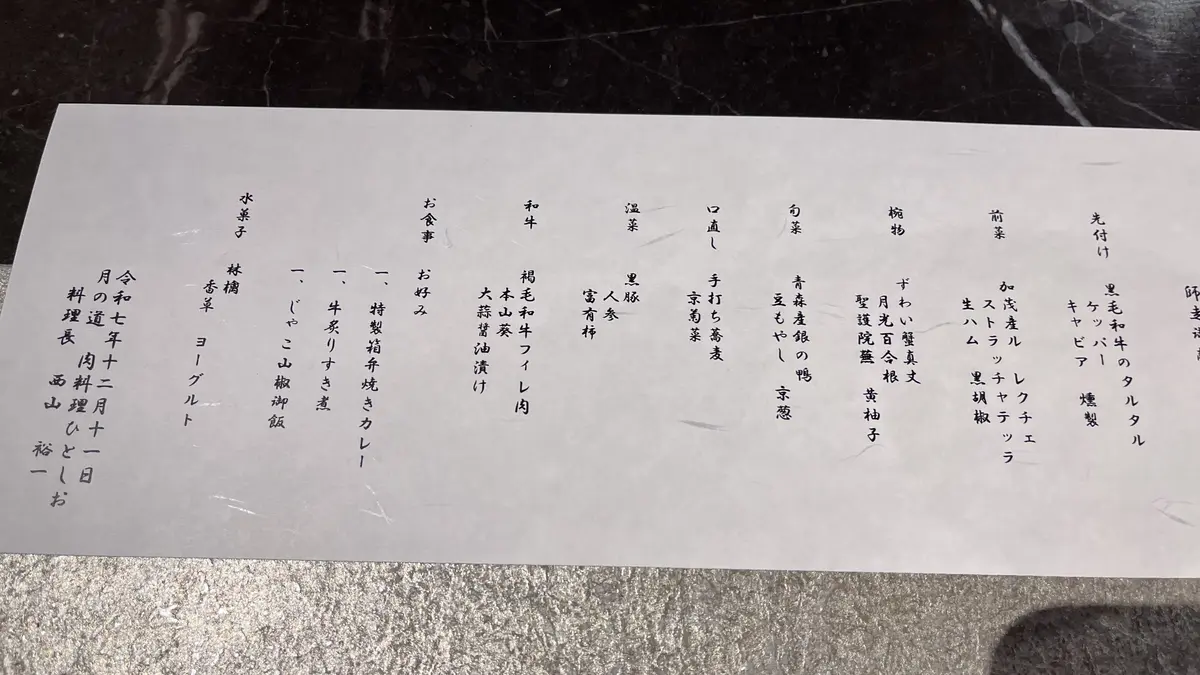 先付け
黒毛和牛のタルタル
ケッパー 燻製
キャビア
前菜
加茂産ル レクチェ
ストラッチャテッラ
生ハム 黒胡椒
椀物
ずわい蟹真丈
月光百合根
聖護院蕪 黄柚子
旬菜
青森産銀の鴨
豆もやし 京葱
口直し
手打ち蕎麦
京菊菜
温菜
黒豚
人参
富有柿
和牛
褐毛和牛フィレ肉
本山葵
大蒜醤油漬け
お食事
お好み
一、特製箱弁焼きカレー
一、牛炙りすき煮
一、じゃこ山椒御飯
水菓子
林檎
香草 ヨーグルト
令和七年十二月十一日
月の道 肉料理ひとしお
料理長 西山 裕一